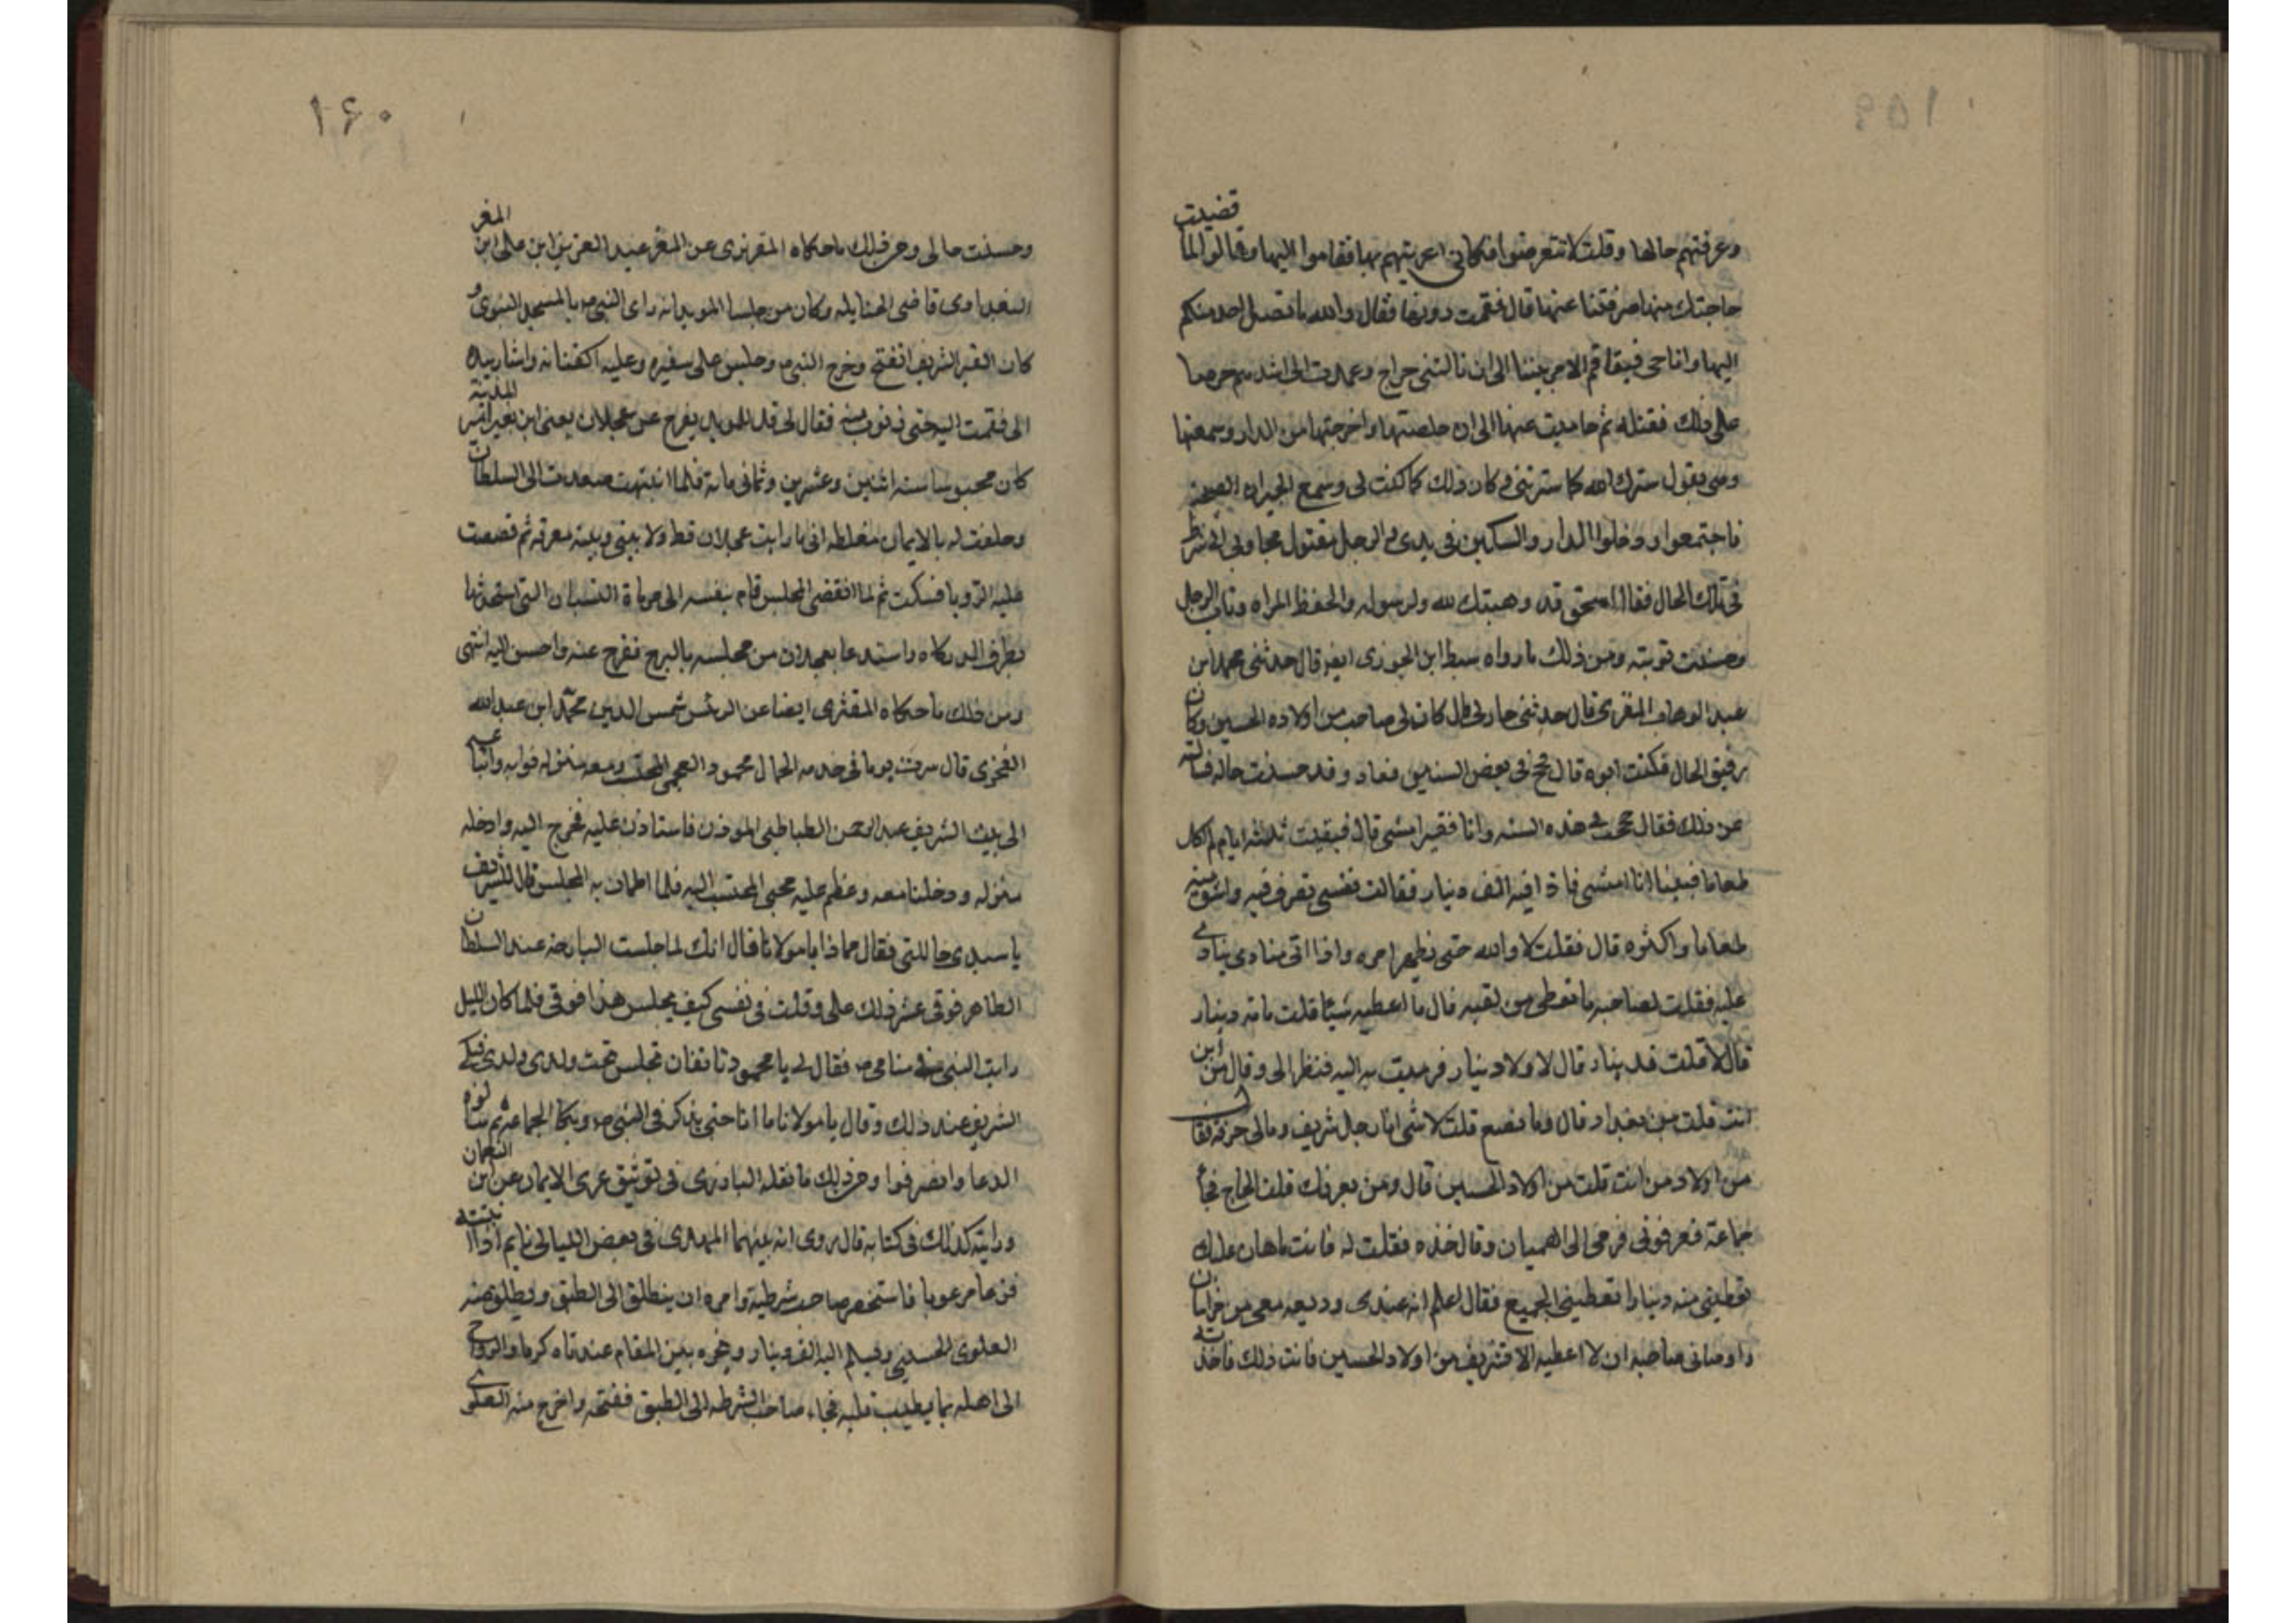 قضيت
وعرفتهم حالها وقلت لا تتعرضوا فكاني اغريتهم بها فقاموا اليها وقالوا لما
حاجتك منها صرفتنا عنها قال فقمت دونها فقال والله ما تصل احد منكم
اليها وانا حي فتفاقم الامر بيننا الى ان نالتني جراح وعمدت الى اشدهم حرصا
على ذلك فقتلته ثم حاميت عنها الى ان خلصتها واخرجتها من الدار وسمعتها
وهي تقول سترك الله كما سترتني وكان ذلك كما كنت لي وسمع الجيران الضجة
فاجتمعوا ودخلوا الدار والسكين في يدي والرجل مقتول فجاؤبي الشرط
في تلك الحال فقال اسحق قد وهبتك لله ولرسوله ولحفظ المراه وتاب الرجل
وحسنت توبته ومن ذلك ما رواه سبط ابن الجوزي ايضا قال حدثني محمد ابن
عبد الوهاب المقري قال حدثني جار لي قال كان لي صاحب من اولاده الحسين وكان
رقيق الحال فكنت ابره قال فحج في بعض السنين فعاد وقد حسنت حاله فسالته
عن ذلك فقال حججت في هذه السنه وانا فقير امشي قال فبقيت ثلثه ايام لم اكل
طعاما فبينا انا امشي فاذا فيه الف دينار فقالت نفسي تعرف فيه واشتر منه
طعاما واكثره قال فقلت لا والله حتى يظهر امره واذا اتى منادي ينادي
عليه فقلت لصاحبه ما تعطي من لقيه قال ما اعطيه شيئا قلت مائة دينار
قال لا قلت قد ينار قال لا ولا دينار فرميت به اليه فنظر الي وقال من اين
انت قلت من بغداد قال وما تصنع قلت لا شي انا رجل شريف ومالي حرفة فقال
من اولاد من انت قلت من اولاد الحسين قال ومن يعرفك قلت الحاج فجا
جماعة فعرفوني فرمى الى الهميان وقال خذه فقلت له فانت ما هان عليك
تعطيني منه دينارا تعطيني الجميع فقال اعلم انه عندي وديعه معي من خراسان
واوصاني صاحبه ان لا اعطيه الا شريف من اولاد الحسين فانت ذلك فاخذته
١٥٩
١۶٠
وحسنت حالي ومن ذلك ما حكاه المقريزي عن المعز عبد العزيز ابن علي ابن المعز
البغدادي قاضي الحنابله وكان من جلسا المويد انه راى النبي ص بالمسجد النبوي و
كان القبر الشريف انفتح وخرج النبي ص وجلس على شفيره وعليه اكفنانه واشار بيده
الي فقمت اليه حتى دنوت منه فقال لي قل للمويد يفرج عن عجلان يعني ابن نعير امير المدينة
كان محبوسا سنه اثنين وعشرين وثماني مائة فلما انتبهت صعدت الى السلطان
وحلفت له بالايمان مغلظه اني ما رايت عجلان قط ولا بيني وبينه معرفة ثم قصصت
عليه الرويا فسكت ثم لما انقضى المجلس قام بنفسه الى مرماة النشاب التي استحدثها
بطرف الدركاه واستدعا بعجلان من مجلسه بالبرج ففرج عنه واحسن اليه انتهى
ومن ذلك ما حكاه المقريزي ايضا عن الرئس شمس الدين محمد ابن عبد الله
العمري قال سرت يوما في خدمه الجمال محمود العجمي المحتسب ومعه منزله نوابه واتباعه
الى بيت الشريف عبد الرحمن الطباطبي الموذن فاستاذن عليه فخرج اليه وادخله
منزله ودخلنا معه وعظم عليه مجي المحتسب اليه فلما اطمان به المجلس قال للشريف
يا سيدي حاللني فقال مما ذا يا مولانا قال انك لما جلست البارحه عند السلطان
الظاهر فوقي عسر ذلك علي وقلت في نفسي كيف يجلس هذا فوقي فلما كان الليل
رايت النبي ص في منامي ص فقال لي يا محمود تانفان تجلس تحت ولدي فبكى
الشريف عند ذلك وقال يا مولانا ما انا حتى يذكرني النبي ص وبكا الجماعه ثم سالوه
الدعا وانصرفوا ومن ذلك ما نقله البارزي في توثيق عرى الايمان عن ابن النعمان
ورايته كذلك في كتابه قال روى انه بينما المهدي في بعض الليالي نايم اذا انتبه
فزعا مرعوبا فاستحضر صاحب شرطيته وامره ان ينطلق الى الطبق ويطلق منه
العلوي الحسيني ويسلم اليه الف دينار ويخيره بين المقام عندناه كرما والرواح
الى اهله بما يطيب قلبه فجاء صاحب الشرطه الى الطبق ففتحه واخرج منه العلوي